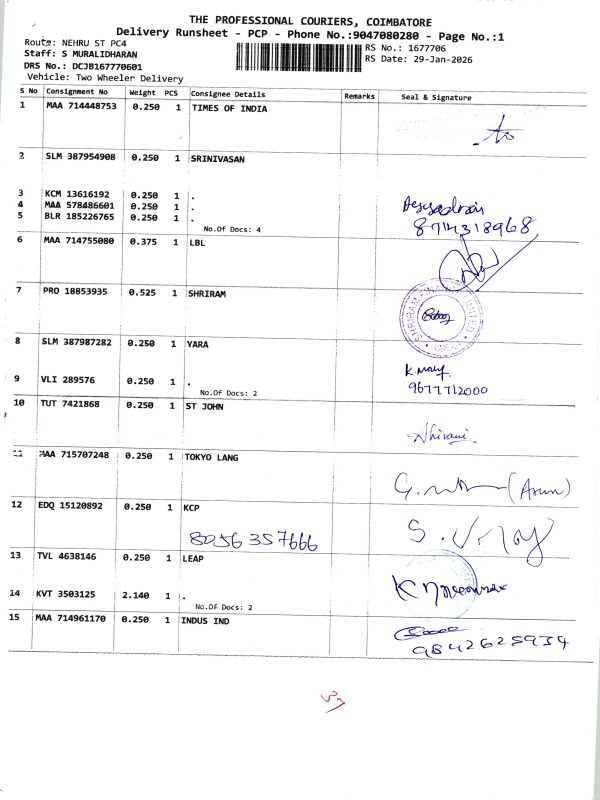 THE PROFESSIONAL COURIERS, COIMBATORE
Delivery Runsheet - PCP - Phone No.:9047080280 - Page No.:1
Route: NEHRU ST PC4
Staff: S MURALIDHARAN
DRS No.: DCJB167770601
Vehicle: Two Wheeler Delivery
RS No.: 1677706
RS Date: 29-Jan-2026
S No Consignment No Weight PCS Consignee Details Remarks Seal & Signature
1 MAA 714448753 0.250 1 TIMES OF INDIA
2 SLM 387954908 0.250 1 SRINIVASAN
3 KCM 13616192 0.250 1 .
4 MAA 578486601 0.250 1 .
5 BLR 185226765 0.250 1 .
No.Of Docs: 4
8714318968
6 MAA 714755080 0.375 1 LBL
7 PRO 18853935 0.525 1 SHRIRAM
8 SLM 387987282 0.250 1 YARA
9 VLI 289576 0.250 1 .
No.Of Docs: 2
9677712000
10 TUT 7421868 0.250 1 ST JOHN
11 MAA 715707248 0.250 1 TOKYO LANG
(Arun)
12 EDQ 15120892 0.250 1 KCP
8056357666
13 TVL 4638146 0.250 1 LEAP
14 KVT 3503125 2.140 1 .
No.Of Docs: 2
15 MAA 714961170 0.250 1 INDUS IND
9842625934